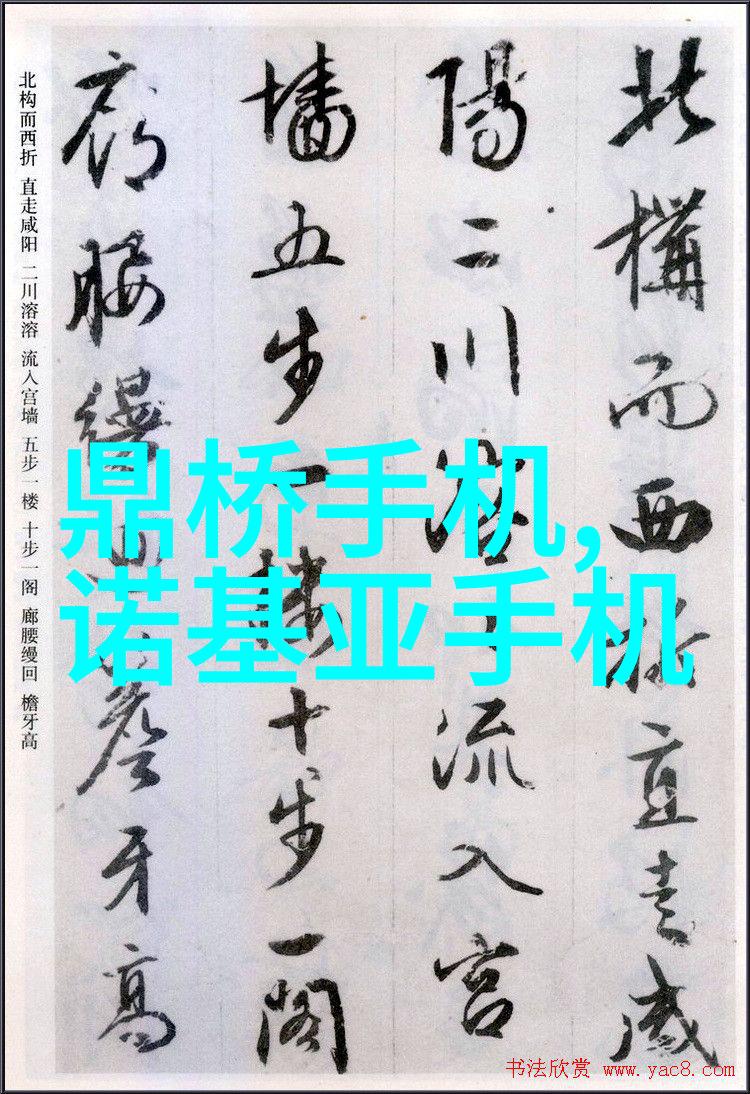 北構而西折直走咸
陽二川溶々流入宫
墙五步一楼十步一阁
廊腰縵迴簷牙高
北构而西折 直走咸阳 二川溶溶 流入宫墙 五步一楼 十步一阁 廊腰缦回 檐牙高
鼎桥手机,
诺基亚手机
书法欣赏 www.yac8.com